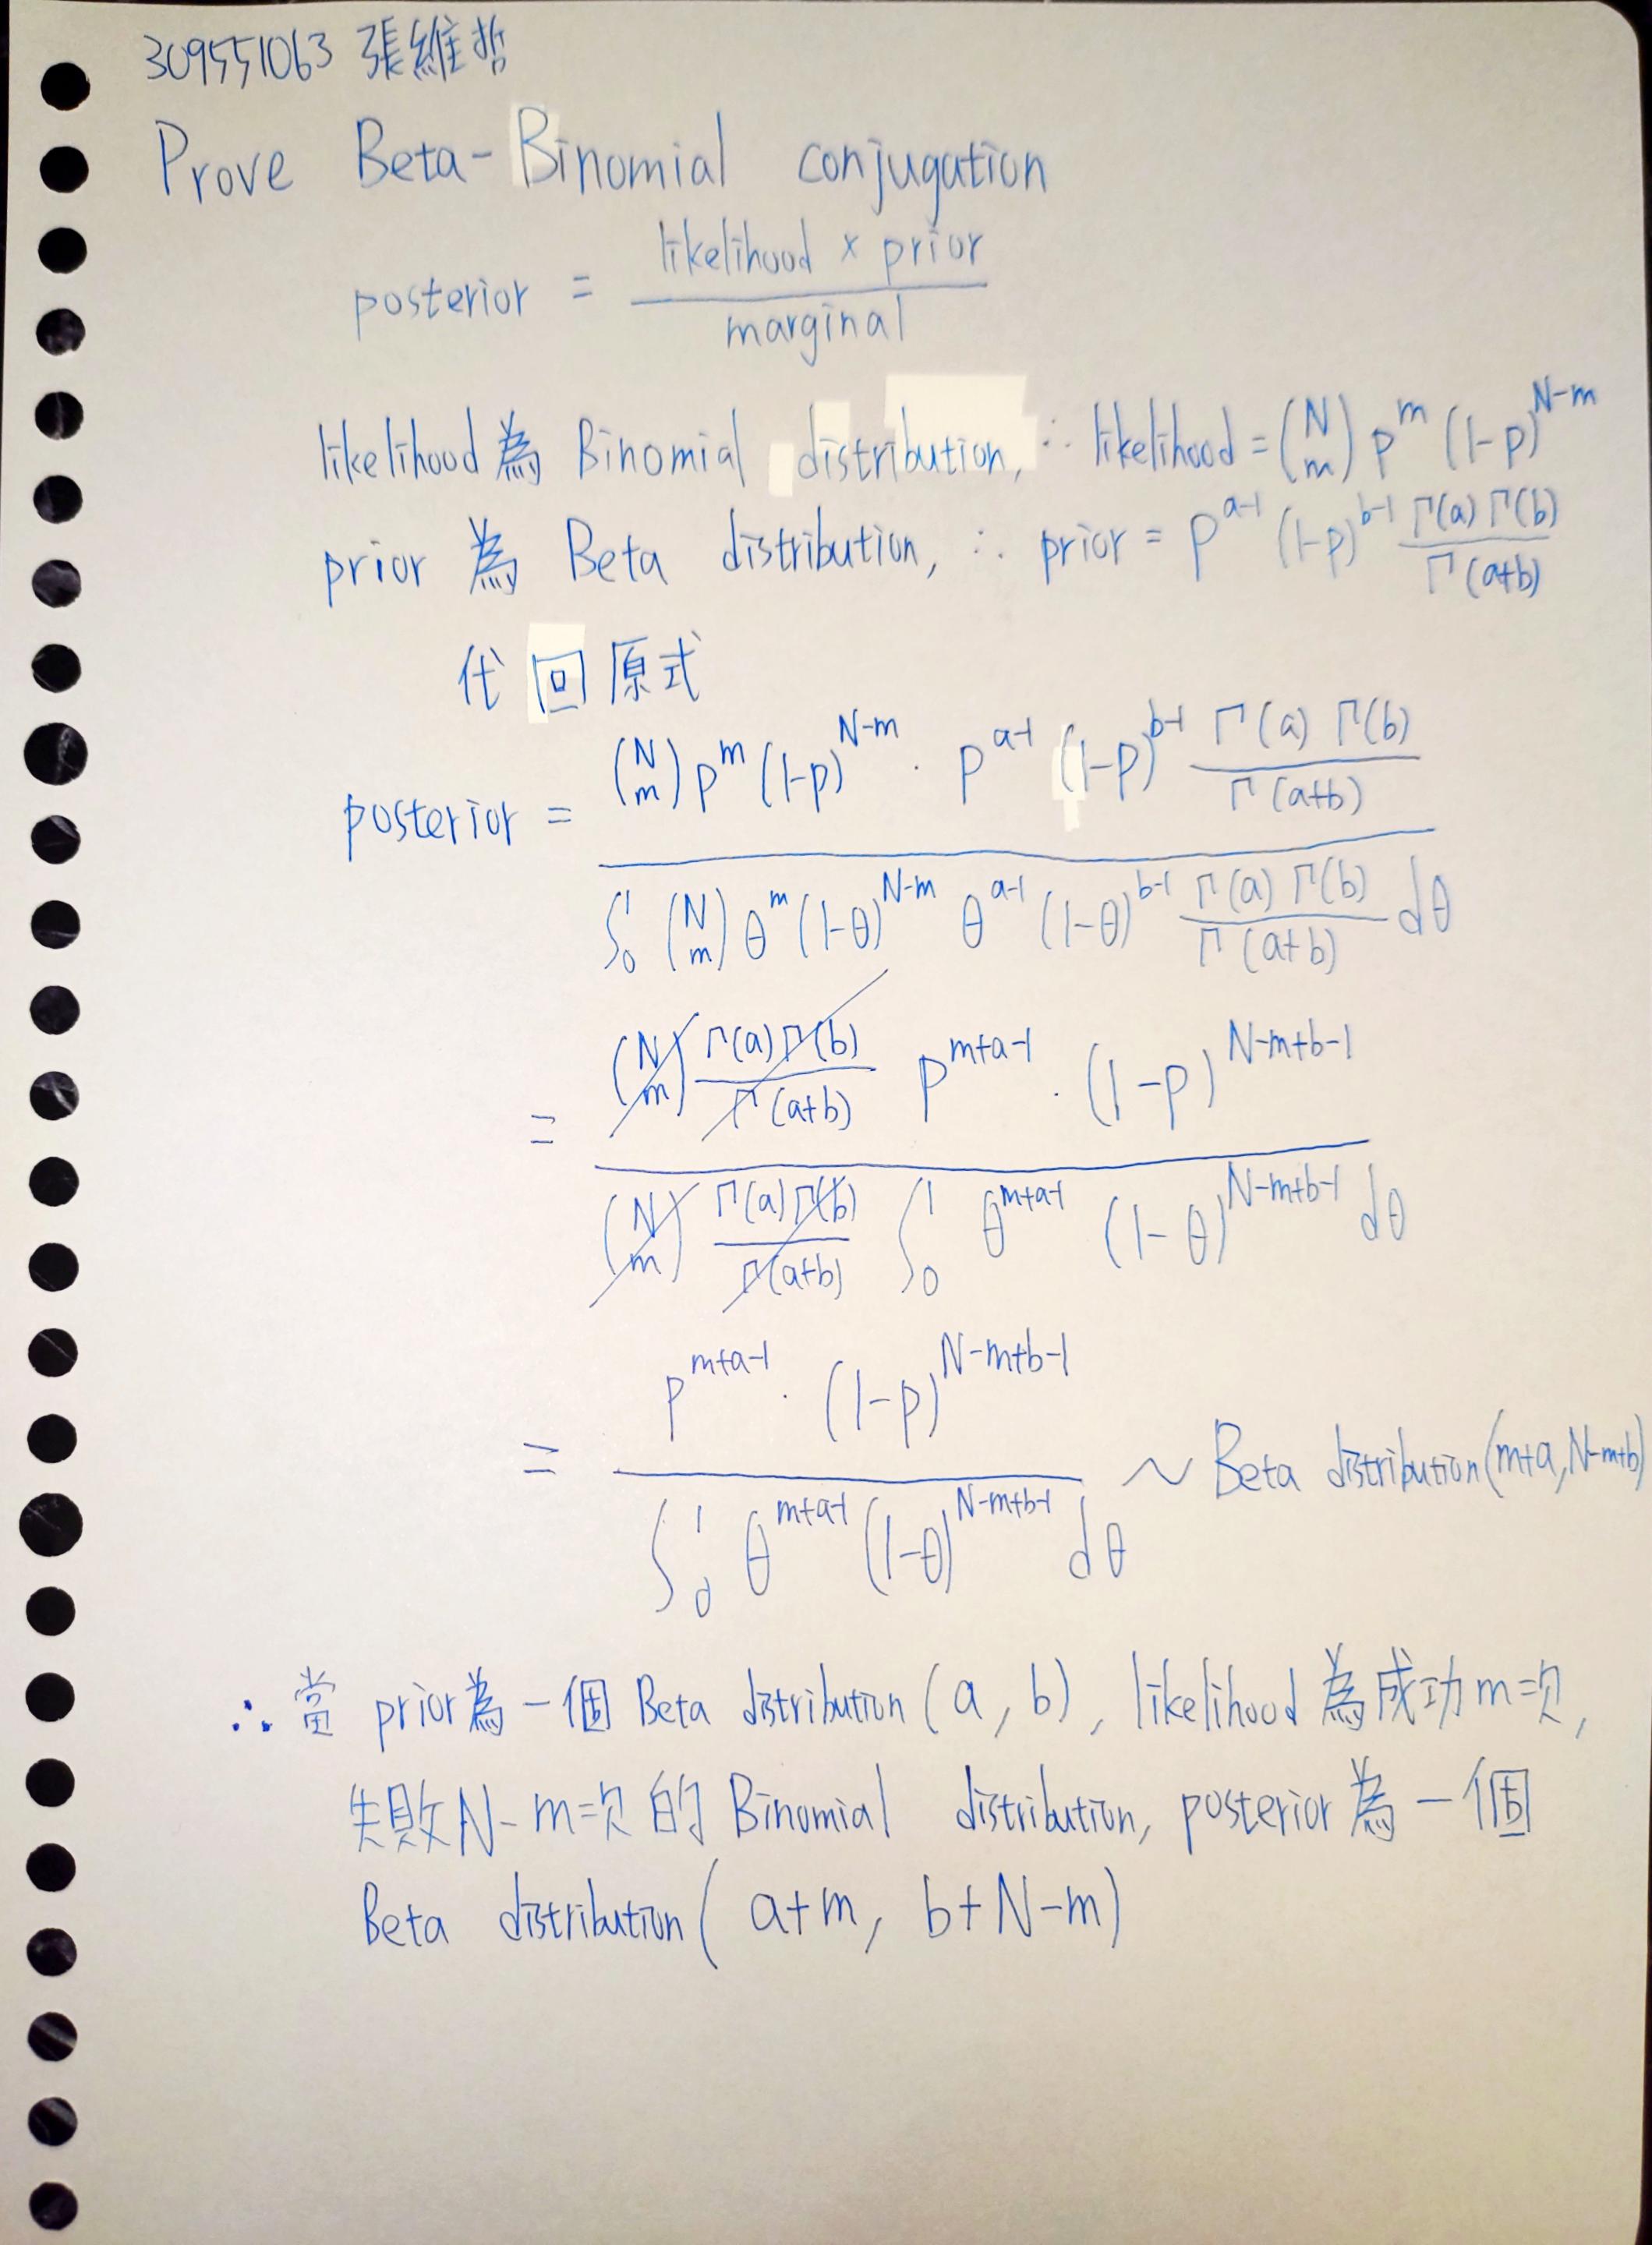 309551063 張維哲
Prove Beta-Binomial conjugation
posterior = \frac{likelihood × prior}{marginal}
likelihood為 Binomial distribution, ∴ likelihood = \binom{N}{m} p^{m} (1-p)^{N-m}
prior 為 Beta distribution, ∴ prior = p^{a-1} (1-p)^{b-1} \frac{Γ(a) Γ(b)}{Γ(a+b)}
代回原式
posterior = \frac{\binom{N}{m} p^{m} (1-p)^{N-m} · p^{a-1} (1-p)^{b-1} \frac{Γ(a) Γ(b)}{Γ(a+b)}}{∫_0^1 \binom{N}{m} θ^{m} (1-θ)^{N-m} θ^{a-1} (1-θ)^{b-1} \frac{Γ(a) Γ(b)}{Γ(a+b)} dθ}
= \frac{\binom{N}{m} \frac{Γ(a)Γ(b)}{Γ(a+b)} p^{m+a-1} · (1-p)^{N-m+b-1}}{\binom{N}{m} \frac{Γ(a)Γ(b)}{Γ(a+b)} ∫_0^1 θ^{m+a-1} (1-θ)^{N-m+b-1} dθ}
= \frac{p^{m+a-1} · (1-p)^{N-m+b-1}}{∫_0^1 θ^{m+a-1} (1-θ)^{N-m+b-1} dθ} ~ Beta distribution(m+a, N-m+b)
∴ 當 prior為一個 Beta distribution (a, b), likelihood 為成功 m 次,
失敗 N-m 次的 Binomial distribution, posterior 為一個
Beta distribution ( a+m, b+N-m)